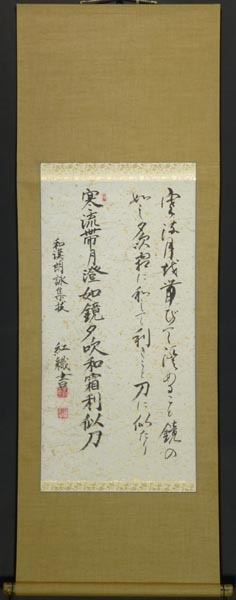 寒流月を帯びて澄めること鏡の
如し夕吹霜に和して利きこと刀に似たり
寒流帶月澄如鏡夕吹和霜利似刀
和漢朗詠集抜
紅織書